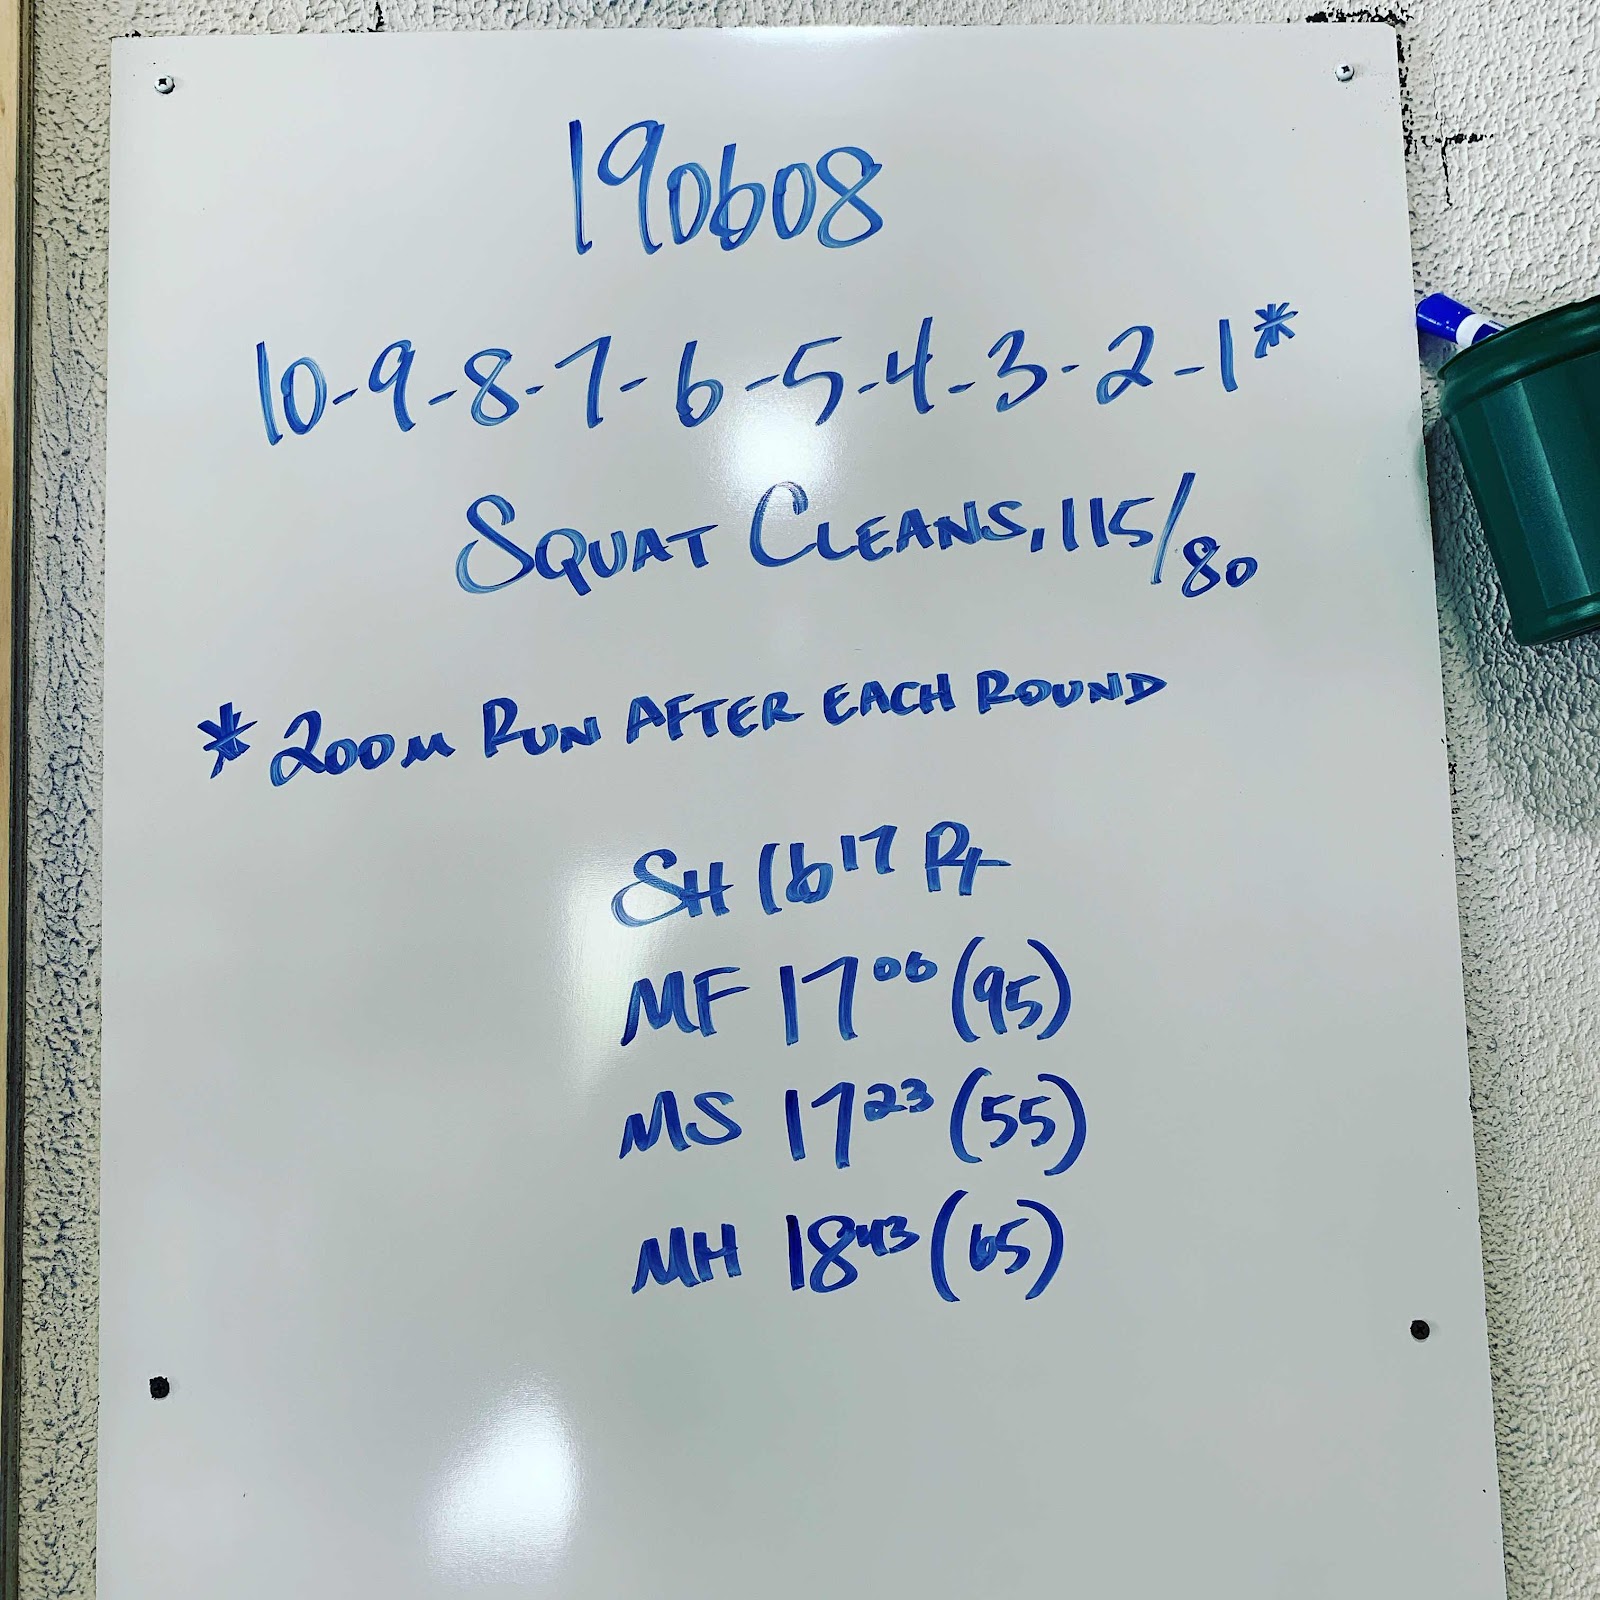 190608
10-9-8-7-6-5-4-3-2-1*
SQUAT CLEANS, 115/80
*200M RUN AFTER EACH ROUND
SH 16 17 Rx
MF 17 06 (95)
MS 17 23 (55)
MH 18 43 (65)